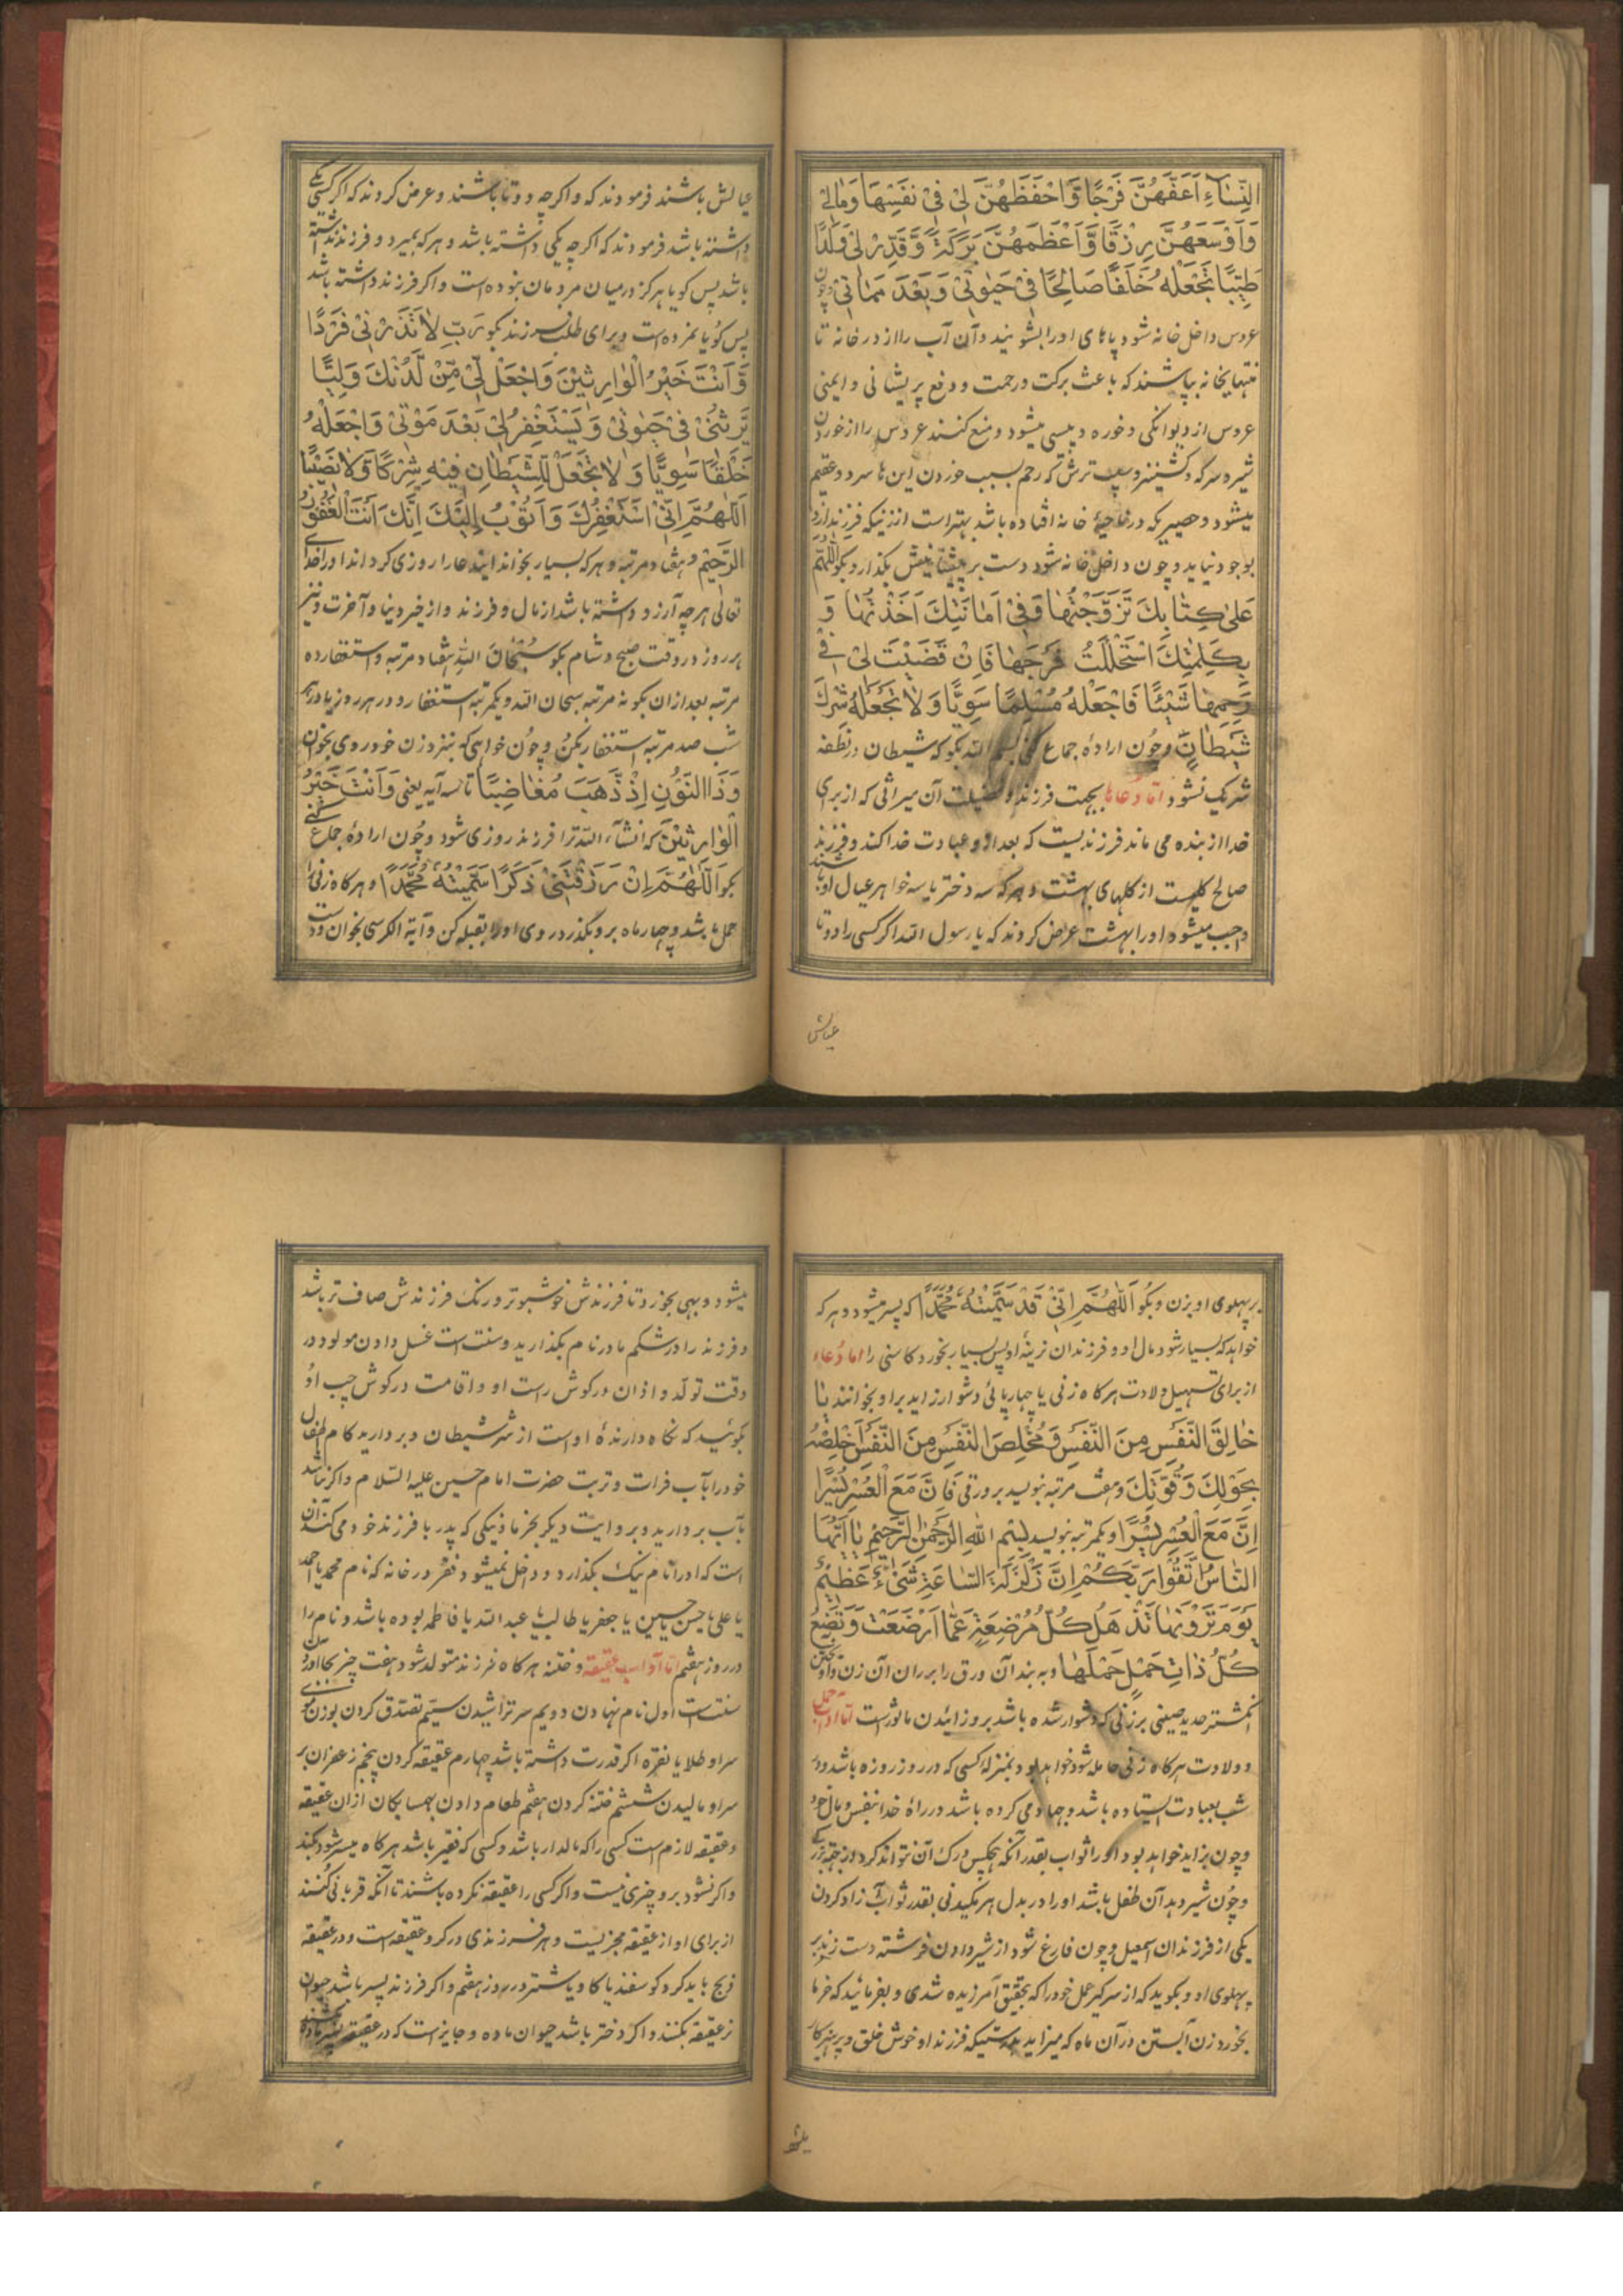 النِّسَاءِ اَعَفَّهُنَّ فَرْجًا وَّاَحْفَظَهُنَّ لِیْ فِیْ نَفْسِهَا وَمَالِیْ
وَاَوْسَعَهُنَّ رِزْقًا وَّاَعْظَمَهُنَّ بَرَکَةً وَّقَدِّرْ لِیْ وَلَدًا
طَیِّبًا تَجْعَلُهُ خَلَفًا صَالِحًا فِیْ حَیٰوتِیْ وَبَعْدَ مَمَاتِیْ و چون
عروس داخل خانه شود پاهای او را بشوئید و آن آب را از در خانه تا
منتهای خانه بپاشند که باعث برکت و رحمت و دفع پریشانی و ایمنی
عروس از دیوانکی و خوره و پیسی میشود و منع کنند عروس را از خوردن
شیر و سرکه و کشنیز و سیب ترش که رحم بسبب خوردن این ها سرد و عقیم
میشود و حصیریکه در ناحیهٔ خانه افتاده باشد بهتر است از زنیکه فرزند ازو
بوجود نیاید و چون داخل خانه شود دست بر پیشانیش بکذارد و بکو اَللّٰهُمَّ
عَلٰی کِتَابِكَ تَزَوَّجْتُهَا وَفِیْ اَمَانَتِكَ اَخَذْتُهَا وَ
بِکَلِمٰتِكَ اسْتَحْلَلْتُ فَرْجَهَا فَاِنْ قَضَیْتَ لِیْ فِیْ
رَحِمِهَا شَیْئًا فَاجْعَلْهُ مُسْلِمًا سَوِیًّا وَلَا تَجْعَلْهُ شِرْكَ
شَیْطَانٍ و چون ارادهٔ جماع کنی بسم الله بکو که شیطان در نطفه
شریک نشود اما دعاها بجهت فرزند و فضیلت آن میراثی که از برای
خدا از بنده می ماند فرزندیست که بعد او عبادت خدا کند و فرزند
صالح کلیست از کلهای بهشت و هرکه سه دختر یا سه خواهر عیال او باشند
واجب میشود او را بهشت عرض کردند که یا رسول الله اکر کسی را دو تا
عیالش
عیالش باشند فرمودند که و اکرچه دو تا باشند و عرض کردند که اکر کسی یکی
داشته باشد فرمودند که اکرچه یکی داشته باشد و هرکه بمیرد و فرزند نداشته
باشد پس کویا هرکز در میان مردمان نبوده است و اکر فرزند داشته باشد
پس کویا نمرده است و برای طلب فرزند بکو رَبِّ لَا تَذَرْنِیْ فَرْدًا
وَّاَنْتَ خَیْرُ الْوَارِثِیْنَ وَاجْعَلْ لِّیْ مِّنْ لَّدُنْكَ وَلِیًّا
یَّرِثُنِیْ فِیْ حَیٰوتِیْ وَیَسْتَغْفِرُ لِیْ بَعْدَ مَوْتِیْ وَاجْعَلْهُ
خَلْقًا سَوِیًّا وَلَا تَجْعَلْ لِلشَّیْطَانِ فِیْهِ شِرْکًا وَّلَا نَصِیْبًا
اَللّٰهُمَّ اِنِّیْ اَسْتَغْفِرُكَ وَاَتُوْبُ اِلَیْكَ اِنَّكَ اَنْتَ الْغَفُوْرُ
الرَّحِیْمُ هفتاد مرتبه و هرکه بسیار بخواند ایندعا را روزی کرداند او را خدای
تعالی هرچه آرزو داشته باشد از مال و فرزند و از خیر دنیا و آخرت و نیز
هر روز در وقت صبح و شام بکو سُبْحَانَ الله هفتاد مرتبه و استغفار ده
مرتبه بعد از آن بکو نه مرتبه سبحان الله و یکمرتبه استغفار و در هر روز یا در
شب صد مرتبه استغفار بکن و چون خواهی که نزد زن خود روی بخوان
وَذَا النُّوْنِ اِذْ ذَّهَبَ مُغَاضِبًا تا سه آیه یعنی وَاَنْتَ خَیْرُ
الْوَارِثِیْنَ که انشاء الله ترا فرزند روزی شود و چون ارادهٔ جماع کنی
بکو اَللّٰهُمَّ اِنْ رَزَقْتَنِیْ ذَکَرًا سَمَّیْتُهُ مُحَمَّدًا و هرکاه زنی را
حمل باشد و چهار ماه برو بکذرد روی او را بقبله کن و آیة الکرسی بخوان و دست
بر پهلوی او بزن و بکو اَللّٰهُمَّ اِنِّیْ قَدْ سَمَّیْتُهُ مُحَمَّدًا که پسر میشود و هرکه
خواهد که بسیار شود مال او و فرزندان نرینهٔ او پس بسیار بخورد کاسنی را اما دعاء
از برای تسهیل ولادت هرکاه زنی یا چهارپائی دشوار زاید بر او بخوانند یَا
خَالِقَ النَّفْسِ مِنَ النَّفْسِ وَمُخَلِّصَ النَّفْسِ مِنَ النَّفْسِ خَلِّصْهُ
بِحَوْلِكَ وَقُوَّتِكَ و هفت مرتبه بنویسد بر ورقی فَاِنَّ مَعَ الْعُسْرِ یُسْرًا
اِنَّ مَعَ الْعُسْرِ یُسْرًا و یکمرتبه بنویسد بِسْمِ اللهِ الرَّحْمٰنِ الرَّحِیْمِ یَا اَیُّهَا
النَّاسُ اتَّقُوْا رَبَّکُمْ اِنَّ زَلْزَلَةَ السَّاعَةِ شَیْءٌ عَظِیْمٌ
یَوْمَ تَرَوْنَهَا تَذْهَلُ کُلُّ مُرْضِعَةٍ عَمَّا اَرْضَعَتْ وَتَضَعُ
کُلُّ ذَاتِ حَمْلٍ حَمْلَهَا و به بند آن ورق را بر ران آن زن
انکشتر حدید صینی بر زنی که دشوار شده باشد برو زائیدن ماثور است اما آداب حمل
و ولادت هرکاه زنی حامله شود خواهد بود بمنزله کسی که در روز روزه باشد و در
شب بعبادت ایستاده باشد و جهاد می کرده باشد در راه خدا بنفس و مال خود
و چون بزاید خواهد بود او را ثواب بقدر آنکه هیچکس درک آن نتواند کرد از جهة بزرکی
و چون شیر دهد آن طفل باشد او را در بدل هر مکیدنی بقدر ثواب آزاد کردن
یکی از فرزندان اسمعیل و چون فارغ شود از شیر دادن فرشته دست زند بر
پهلوی او و بکوید که از سر کیر عمل خود را که بتحقیق آمرزیده شدی و بفرمائید که خرما
بخورد زن آبستن در آن ماه که میزاید بدرستیکه فرزند او خوش خلق و پرهیزکار
میشود
میشود و بهی بخورد تا فرزندش خوشبوتر و رنک فرزندش صاف تر باشد
و فرزند را در شکم مادر نام بکذارید و سنت است غسل دادن مولود در
وقت تولد و اذان در کوش راست او و اقامت در کوش چپ او
بکوئید که نکاه دارندهٔ او است از شر شیطان و بردارید کام طفل
خود را بآب فرات و تربت حضرت امام حسین علیه السلام و اکر نباشد
بآب بردارید و بروایت دیکر بخرما و نیکی که پدر با فرزند خود می کند آن
است که او را نام نیک بکذارد و داخل نمیشود فقر در خانه که نام محمد یا احمد
یا علی یا حسن یا حسین یا جعفر یا طالب یا عبد الله یا فاطمه بوده باشد و نام را
در روز هفتم اما آداب عقیقه و ختنه هرکاه فرزند متولد شود هفت چیز بجا آوردن
سنت است اول نام نهادن دویم سر تراشیدن سیم تصدق کردن بوزن موی
سر او طلا یا نقره اکر قدرت داشته باشد چهارم عقیقه کردن پنجم زعفران بر
سر او مالیدن ششم ختنه کردن هفتم طعام دادن بهمسایکان از آن عقیقه
و عقیقه لازم است کسی را که مالدار باشد و کسی که فقیر باشد هرکاه میسر شود بکند
و اکر نشود برو چیزی نیست و اکر کسی را عقیقه نکرده باشند تا آنکه قربانی کنند
از برای او از عقیقه مجزیست و هر فرزندی در کرو عقیقه است و در عقیقه
ذبح باید کرد کوسفند یا کاو یا شتر در روز هفتم و اکر فرزند پسر باشد حیوان
نر عقیقه بکنند و اکر دختر باشد حیوان ماده و جایز است که در عقیقه